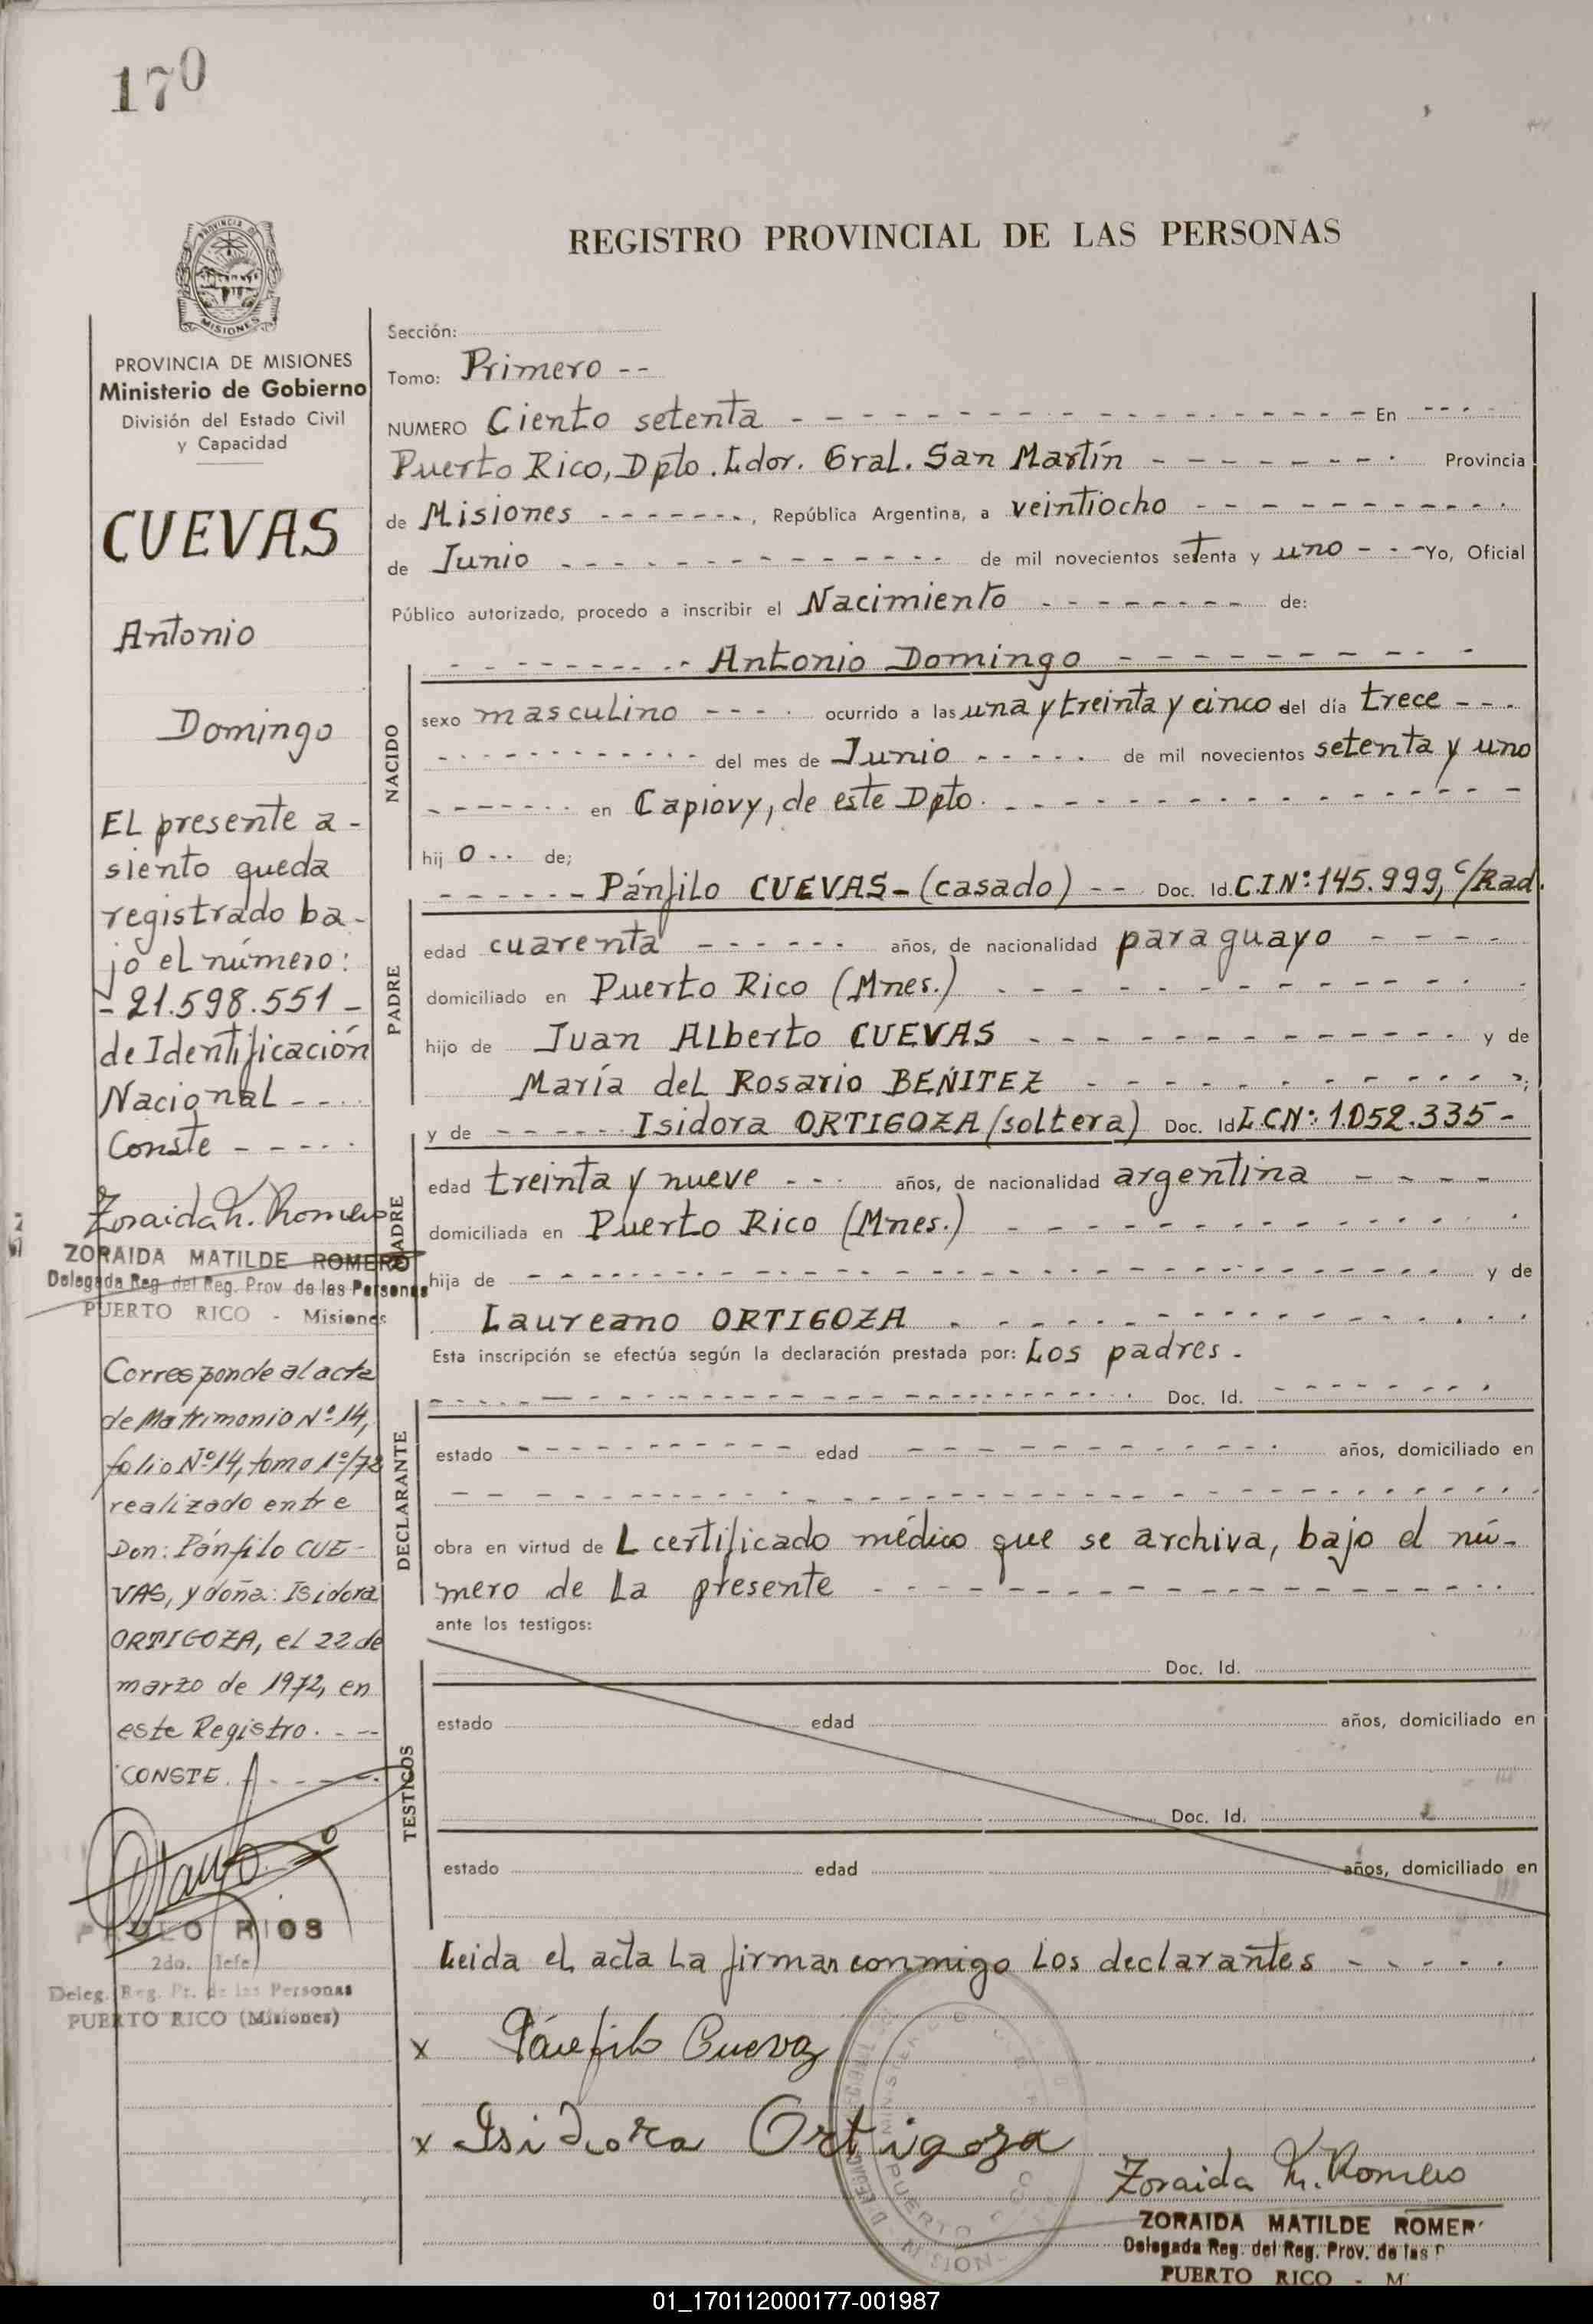 170
REGISTRO PROVINCIAL DE LAS PERSONAS
MISIONES
PROVINCIA DE MISIONES
Ministerio de Gobierno
División del Estado Civil
y Capacidad
CUEVAS
Antonio
Domingo
EL presente a-
siento queda
registrado ba-
jo el número:
- 21.598.551 -
de Identificación
Nacional - - - -
Conste - - - - -
Zoraida M. Romero
ZORAIDA MATILDE ROMERO
Delegada Reg. del Reg. Prov. de las Personas
PUERTO RICO - Misiones
Corresponde al acta
de Matrimonio Nº 14,
folio Nº 14, tomo 1º/72
realizado entre
Don: Pánfilo CUE-
VAS, y doña: Isidora
ORTIGOZA, el 22 de
marzo de 1972, en
este Registro. - --
CONSTE. - - - - -
PABLO RIOS
2do. Jefe
Deleg. Reg. Pr. de las Personas
PUERTO RICO (Misiones)
Sección:
Tomo: Primero --
NUMERO Ciento setenta - - - - - - En - - - -
Puerto Rico, Dpto. Ldor. Gral. San Martín - - - - - - Provincia
de Misiones - - - - - - -, República Argentina, a veintiocho - - - - - -
de Junio - - - - - - de mil novecientos setenta y uno - - - Yo, Oficial
Público autorizado, procedo a inscribir el Nacimiento - - - - - - de:
- - - - - - Antonio Domingo - - - - - -
NACIDO
sexo masculino - - - - ocurrido a las una y treinta y cinco del día trece - - -
- - - - - - del mes de Junio - - - - - de mil novecientos setenta y uno
- - - - - - en Capiovy, de este Dpto. - - - - - -
hij o - - de;
- - - - - - Pánfilo CUEVAS - (casado) - - Doc. Id. C.I.Nº: 145.999, c/Rad.
PADRE
edad cuarenta - - - - - - años, de nacionalidad paraguayo - - - -
domiciliado en Puerto Rico (Mnes.) - - - - - -
hijo de Juan ALberto CUEVAS - - - - - - y de
María deL Rosario BENITEZ - - - - - - ;
y de - - - - - - Isidora ORTIGOZA (soltera) Doc. Id L.C.Nº: 1.052.335 -
MADRE
edad treinta y nueve - - - años, de nacionalidad argentina - - - -
domiciliada en Puerto Rico (Mnes.) - - - - - -
hija de - - - - - - y de
Laureano ORTIGOZA - - - - - -
Esta inscripción se efectúa según la declaración prestada por: Los padres. -
- - - - - - Doc. Id. - - - - - -
DECLARANTE
estado - - - - - - edad - - - - - - años, domiciliado en
- - - - - -
obra en virtud de L certificado médico que se archiva, bajo el nú-
mero de La presente - - - - - -
ante los testigos:
Doc. Id.
TESTIGOS
estado edad años, domiciliado en
Doc. Id.
estado edad años, domiciliado en
Leida el acta La firman conmigo Los declarantes - - - - -
x Pánfilo Cueva
x Isidora Ortigoza
Zoraida M. Romero
ZORAIDA MATILDE ROMER
Delegada Reg. del Reg. Prov. de las P
PUERTO RICO - M
01_170112000177-001987